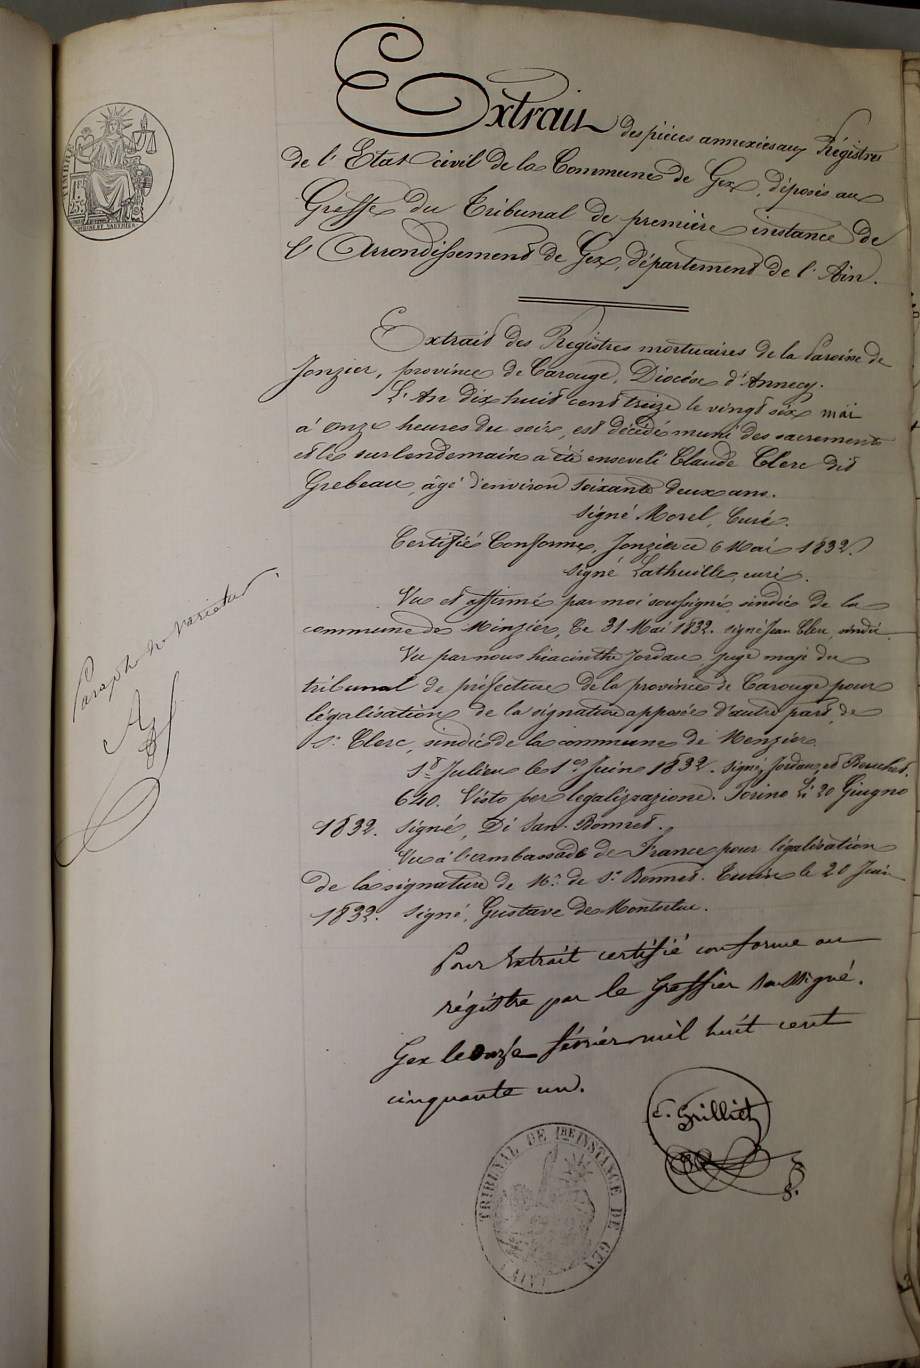 TIMBRE
Extrait des pièces annexées aux Régistres
de l'Etat civil de la Commune de Gex, déposés au
Greffe du Tribunal de première instance de
l'Arrondissement de Gex, département de l'Ain.
Extrait des Registres mortuaires de la Paroisse de
Jonzier, province de Carouge, Diocèse d'Annecy.
L'An dix huit cent treize le vingt six mai
à onze heures du soir, est décédé muni des sacrements
et le surlendemain a été enseveli Claude Clerc dit
Grebeau, âgé d'environ soixante deux ans.
signé Morel, Curé.
Certifié Conforme, Jonzier ce 6 Mai 1832.
signé Lathuille, curé.
Vu et affirmé par moi soussigné, sindic de la
commune de Minzier, Ce 31 Mai 1832. signé Jean Clerc, sindic.
Vu par nous hiacinthe Jordan juge maje du
tribunal de préfecture de la province de Carouge pour
légalisation de la signature apposée d'autre part, de
Sr. Clerc, sindic de la commune de Menzier.
St Julien le 1er Juin 1832. signé, Jordan, et
640. Visto per legalizzazione. Torino li 20 Giugno
1832. signé, Di San. Bonnet.
Vu à l'ambassade de France pour légalisation
de la signature de Mr. de St Bonnet. Turin le 20 Juin
1832. signé, Gustave de Montebu.
Pour Extrait certifié conforme au
régistre par le Greffier soussigné.
Gex le onze février mil huit cent
cinquante un.
Paraphé ne varietur
E. Grilliet
TRIBUNAL DE 1RE INSTANCE DE GEX
(AIN)